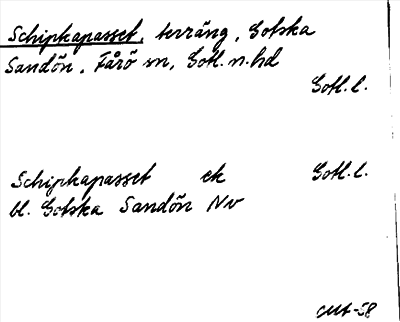 Schipkapasset, terräng, Gotska
Sandön, Fårö sn, Gotl. n. hd
Gotl. l.
Schipkapasset ek Gotl. l.
bl. Gotska Sandön Nv
-58